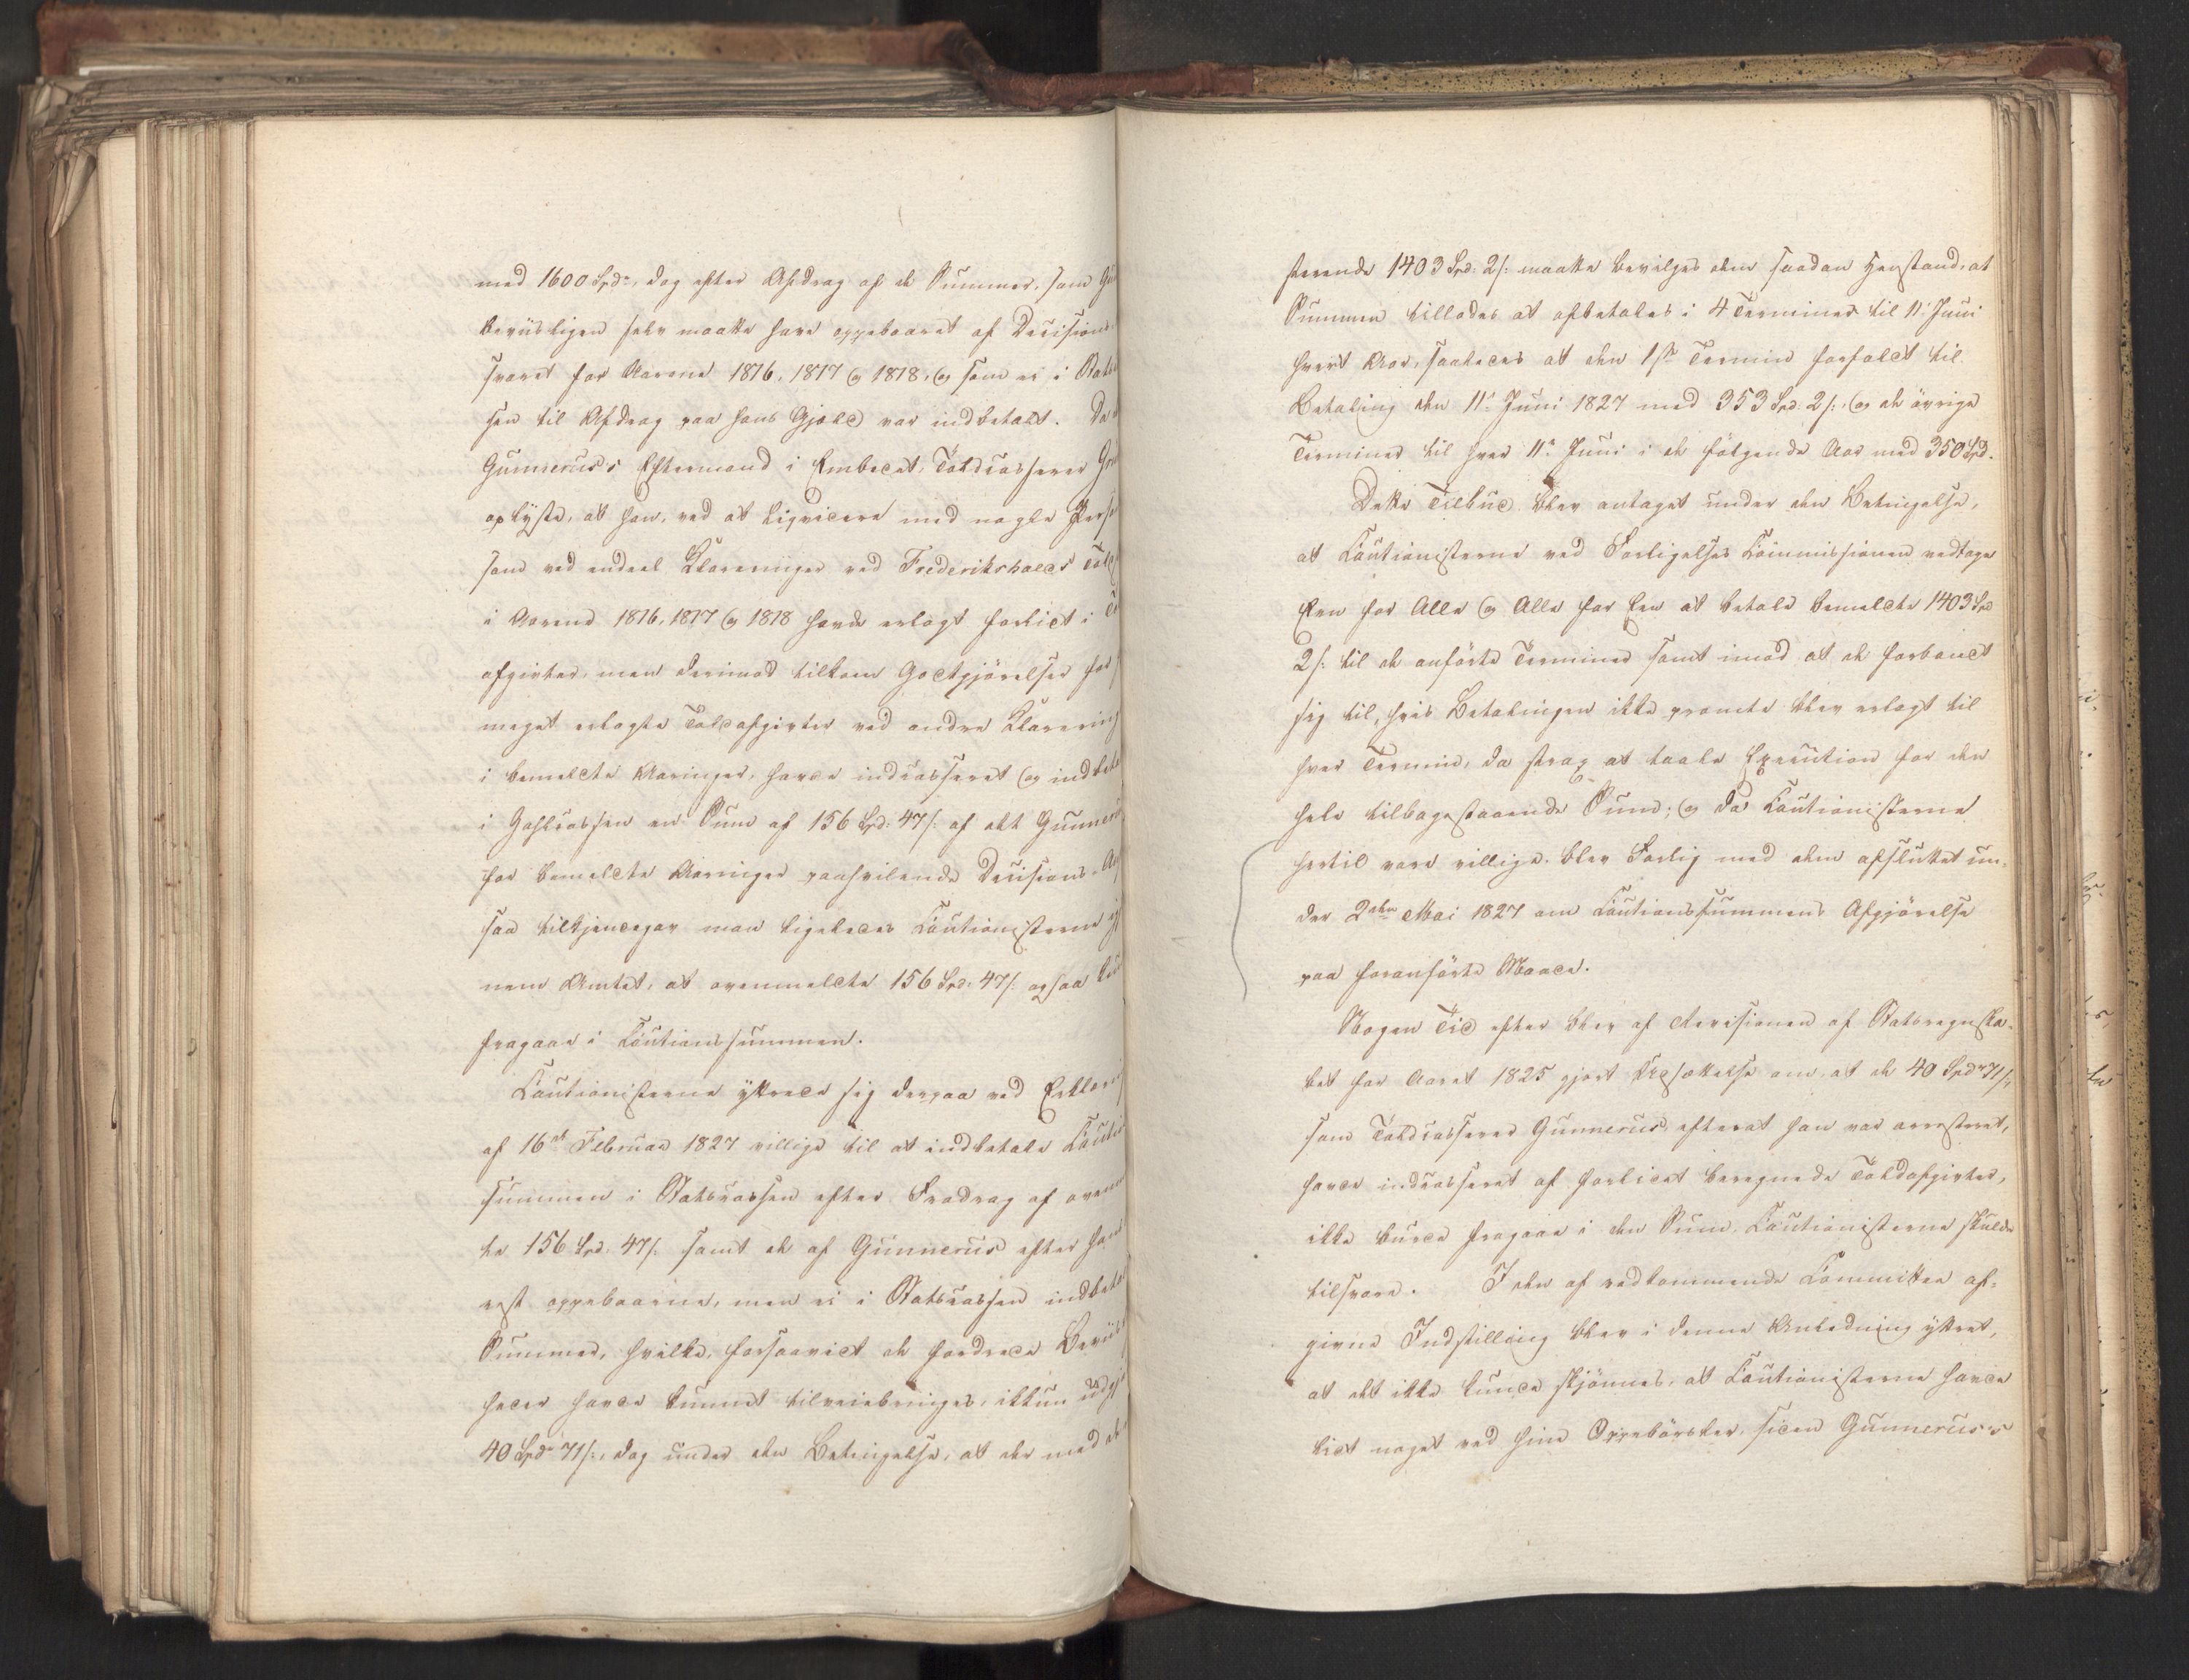 med 1600 Spdr, dog efter Afdrag af de Summer, som
beviisligen selv maatte have oppebaaret af Decisions-
svaret for Aarene 1816, 1817 og 1818, og som ei i
sen til Afdrag paa hans Gjæld var indbetalt. Da
Gunnerus's Eftermand i Embedet, Toldcasserer
oplyste, at han, ved at liqvidere med nogle
som ved endeel Klareringer ved Frederikshalds
i Aarene 1816, 1817 og 1818 havde erlagt forlidt i
afgivter, men derimod tilkom Godtgjörelser for
meget erlagte Toldafgivter ved andre
i bemeldte Aaringer, havde indcasseret og
i Zahlcassen en Sum af 156 Spd: 47 s: af det
for bemeldte Aaringer paahvilende Decisions-
saa tilkjendegav man ligeledes Cautionisterne
nem Amtet, at ovenmeldte 156 Spd. 47 s: ogsaa
fragaae i Cautionssummen.
Cautionisterne yttrede sig derpaa ved
af 16de Februar 1827 villige til at indbetale
summen i Statscassen efter Fradrag af
te 156 Spd. 47 s. samt de af Gunnerus efter
rest oppebaarne, men ei i Statscassen
Summer, hvilke, forsaavidt de fordrede
heder havde kunnet tilveiebringes, ikkun
40 Spdr 71 s:, dog under den Betingelse, at der med
sterende 1403 Spd. 2 s: maatte bevilges dem saadan Henstand, at
Summen tillodes at afbetales i 4 Terminer til 11te Juni
hvert Aar, saaledes at den 1ste Termin forfaldt til
Betaling den 11te Juni 1827 med 353 Spd: 2 s:, og de övrige
Terminer til hver 11te Juni i de fölgende Aar med 350 Spd.
Dette Tilbud blev antaget under den Betingelse,
at Cautionisterne ved Forligelses Commissionen vedtoge
Een for Alle og Alle for Een at betale bemeldte 1403 Spd
2 s: til de anförte Terminer samt imod at de forbandt
sig til, hvis Betalingen ikke promte blev erlagt til
hver Termin, da strax at taale Execution for den
hele tilbagestaaende Sum; og da Cautionisterne
hertil vare villige, blev Forlig med dem afsluttet un-
der 2den Mai 1827 om Cautionssummens Afgjörelse
paa foranförte Maade.
Nogen Tid efter blev af Revisionen af Statsregnska-
bet for Aaret 1825 gjort Udsættelse om, at de 40 Spdr 71 s:
som Toldcasserer Gunnerus, efterat han var arresteret,
havde indcasseret af forlidet beregnede Toldafgivter,
ikke burde fragaae i den Sum, Cautionisterne skulde
tilsvare. I den af vedkommende Committee af-
givne Indstilling blev i denne Anledning yttret,
at det ikke kunde skjönnes, at Cautionisterne havde
lidt noget ved hine Oppebörsler, siden Gunnerus's